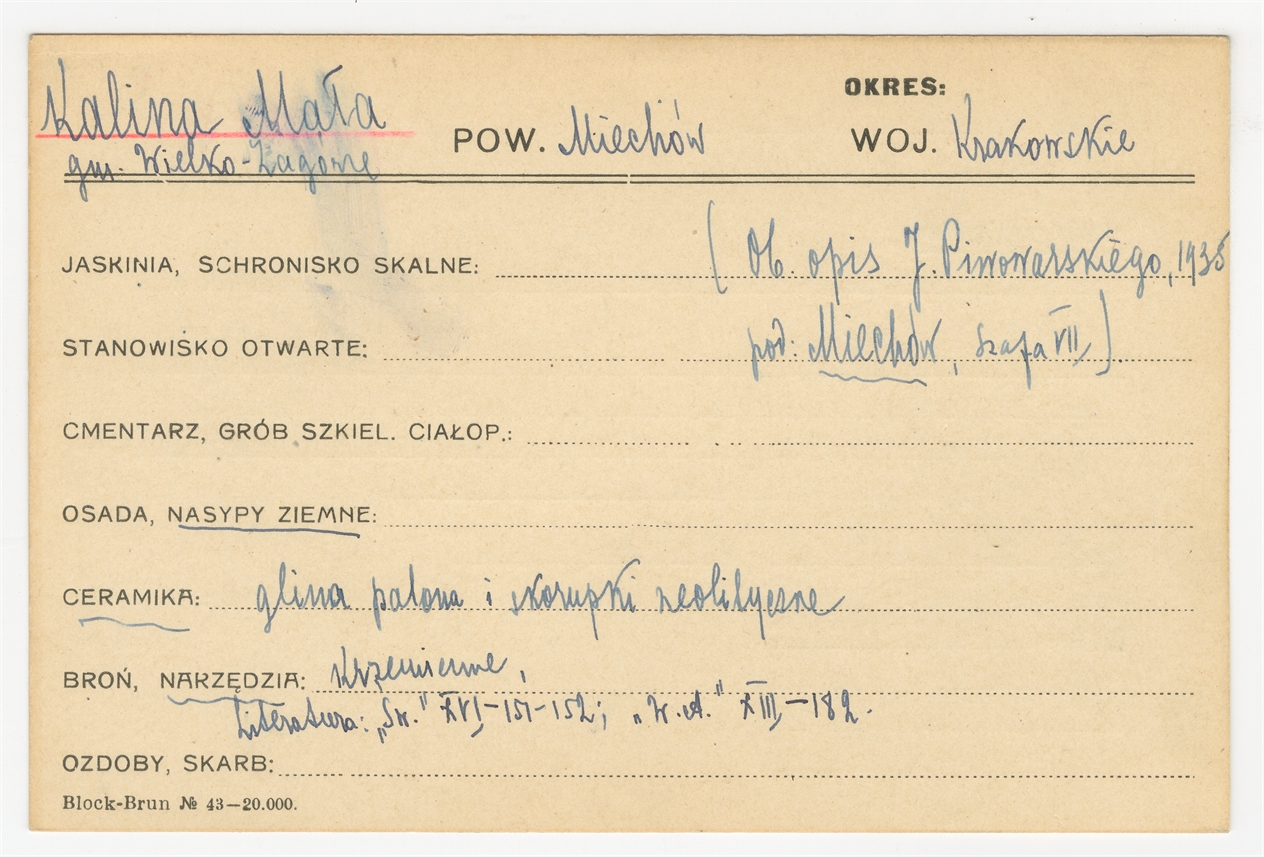 Kalina Mała
OKRES:
POW. Miechów WOJ. Krakowskie
gm. Wielko-Zagórze
JASKINIA, SCHRONISKO SKALNE: (Ob. opis J. Piwowarskiego, 1935
STANOWISKO OTWARTE: pod: Miechów, szafa VII)
CMENTARZ, GRÓB SZKIEL. CIAŁOP.:
OSADA, NASYPY ZIEMNE:
CERAMIKA: glina palona i skorupki neolityczne
BROŃ, NARZĘDZIA: Krzemienne,
Literatura: „Św." XVI-151-152; „W.A." XIII-182.
OZDOBY, SKARB:
Block-Brun № 43—20.000.